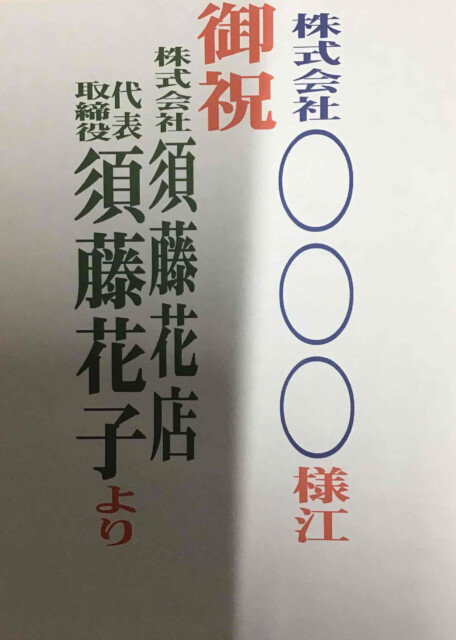 株式会社〇〇〇様江
御祝
株式会社須藤花店
代表取締役須藤花子より